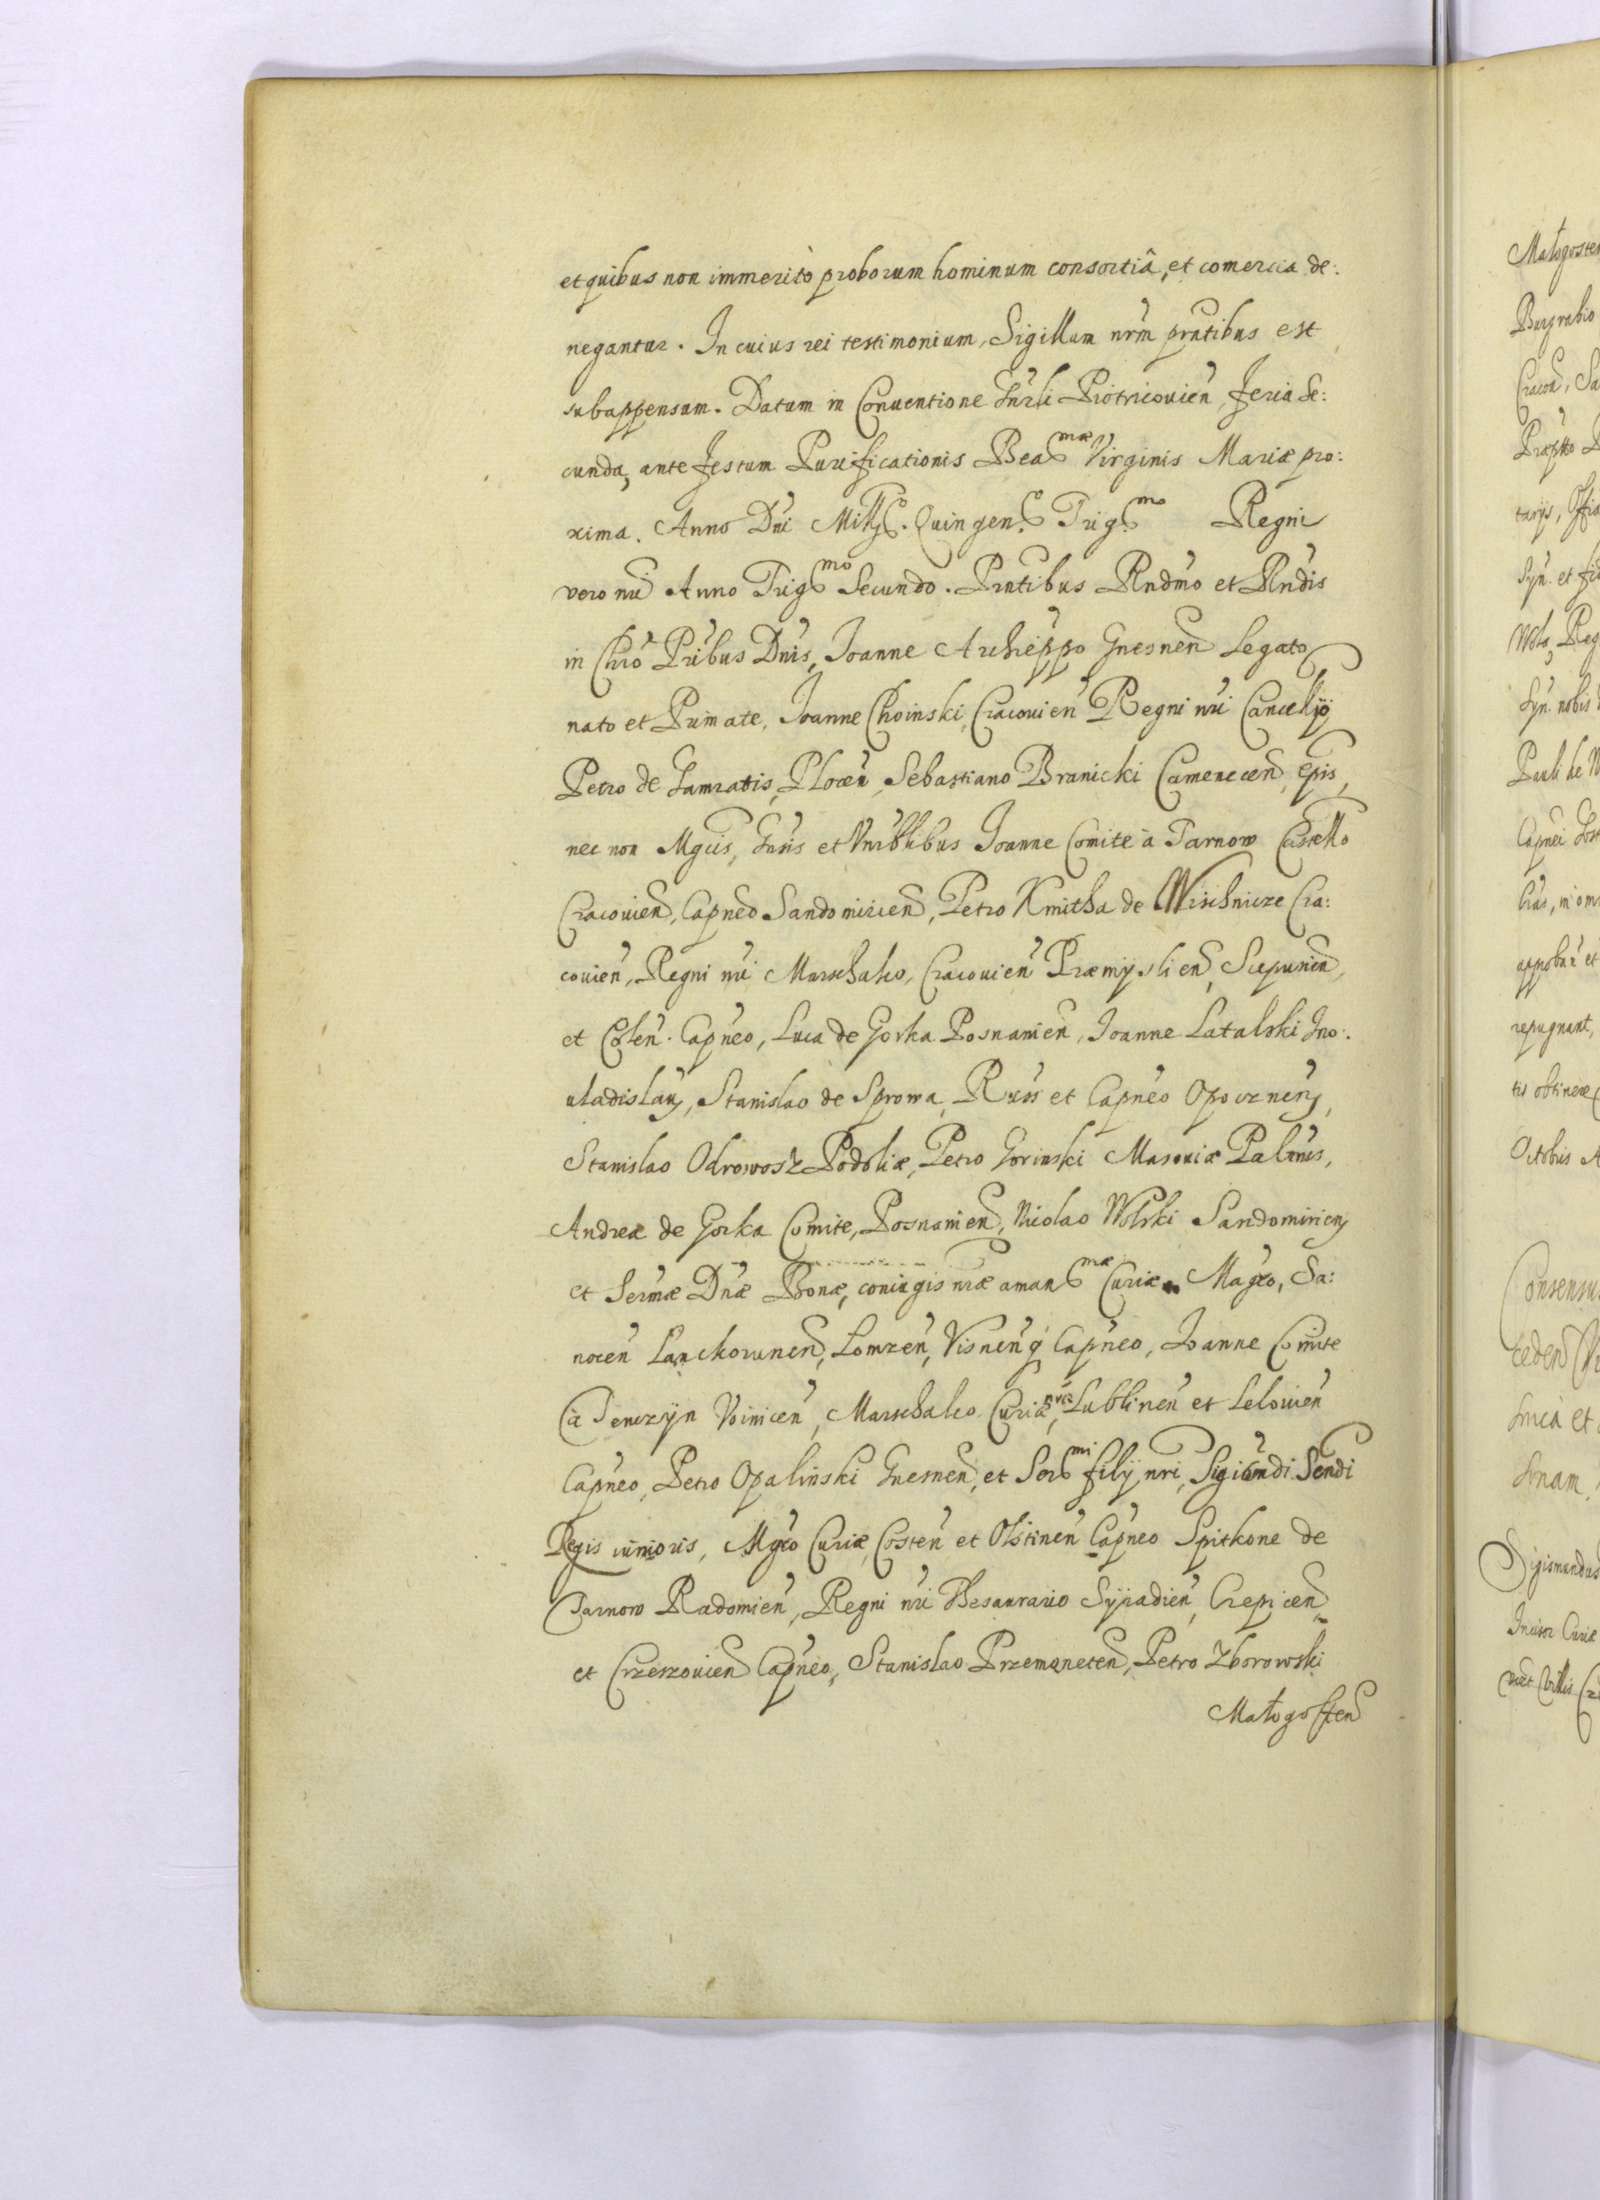 et quibus non immeritò proborum hominum consortiâ, et comercia de:
negantur. In cuius rei testimonium, Sigillum nrm pratibus est
subappensum. Datum in Conuentione Gnrli Piotricouien, Feria Se:
cunda, ante Festum Purificationis Bea mæ Virginis Mariæ pro:
xima. Anno Dni Mill. Quingen. Trig mo Regni
vero nri Anno Trig mo Secundo. Pratibus Rndmo et Rndis
in Chro Pribus Dnis, Joanne Archieppo Gnesnen Legato
nato et Primate, Joanne Choinski, Cracouien Regni nri Cancell
Petro de Gamratis, Plocen, Sebastiano Branicki Camenecen, Epis,
nec non Mgcis, Gnsis et Joanne Comite à Tarnow Castello
Cracouien, Capneo Sandomirien, Petro Kmitha de Wischnicze Cra:
couien, Regni nri Marschalco, Cracouien Præmyslien, Scepusien,
et Colen. Capneo, Luca de Gorka Posnanien, Joanne Latalski Ino:
uladislauien, Stanislao de Sprowa, Russ et Capneo Opocznen,
Stanislao Odrowosz Podoliæ, Petro Gorinski Masouiæ Palnis,
Andrea de Gorka Comite, Posnanien, Nicolao Wolski Sandomirien
et Sermæ Dnæ Bonæ, coniugis nræ aman mæ Curiæ Magro, Sa:
nocen Lanckorunen, Lomzen, Visnen q Capneo, Joanne Comite
à Tenczyn Voinicen, Marschalco Curiæ nræ, Lublinen et Lelouien
Capneo, Petro Opalinski Gnesnen, et Ser mi filij nri, Sigismundi Sendi
Regis iunioris, Mgro Curiæ, Costen et Olstinen Capneo Spitkone de
Tarnow Radomien, Regni nri Thesaurario Syradien, Crepicen
et Crzeszouien Capneo, Stanislao Przemeneten, Petro Zborowski
Małogosten
Małogosten
Burgrabio
Cracou, Sa
Præpto
tarys,
Syn. et
Wola, Reg
Syn. nobis
Pauli de
Capnei
approbat et
repugnant,
tis obtinere
Octobris A
Consensus
cedend
Sigismundus
Incisor Curiæ
Villis